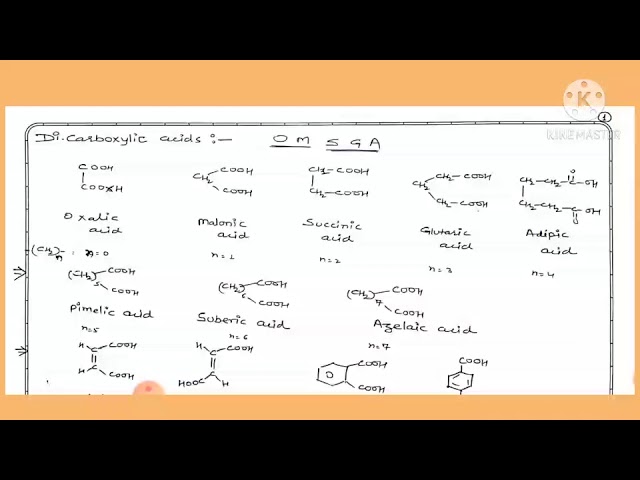 K
KINEMASTER
1
Di.carboxylic acids :- O M S G A
COOH
COOH
Oxalic acid
(CH2)n : n=0
CH2 COOH COOH
Malonic acid
n=1
CH2-COOH
CH2-COOH
Succinic acid
n=2
CH2 CH2-COOH
CH2-COOH
Glutaric acid
n=3
CH2-CH2-C-OH O
CH2-CH2-C-OH O
Adipic acid
n=4
(CH2)5 COOH COOH
Pimelic acid
n=5
(CH2)6 COOH COOH
Suberic acid
n=6
(CH2)7 COOH COOH
Azelaic acid
n=7
H C COOH
H C COOH
H C COOH
HOOC C H
COOH
COOH
COOH